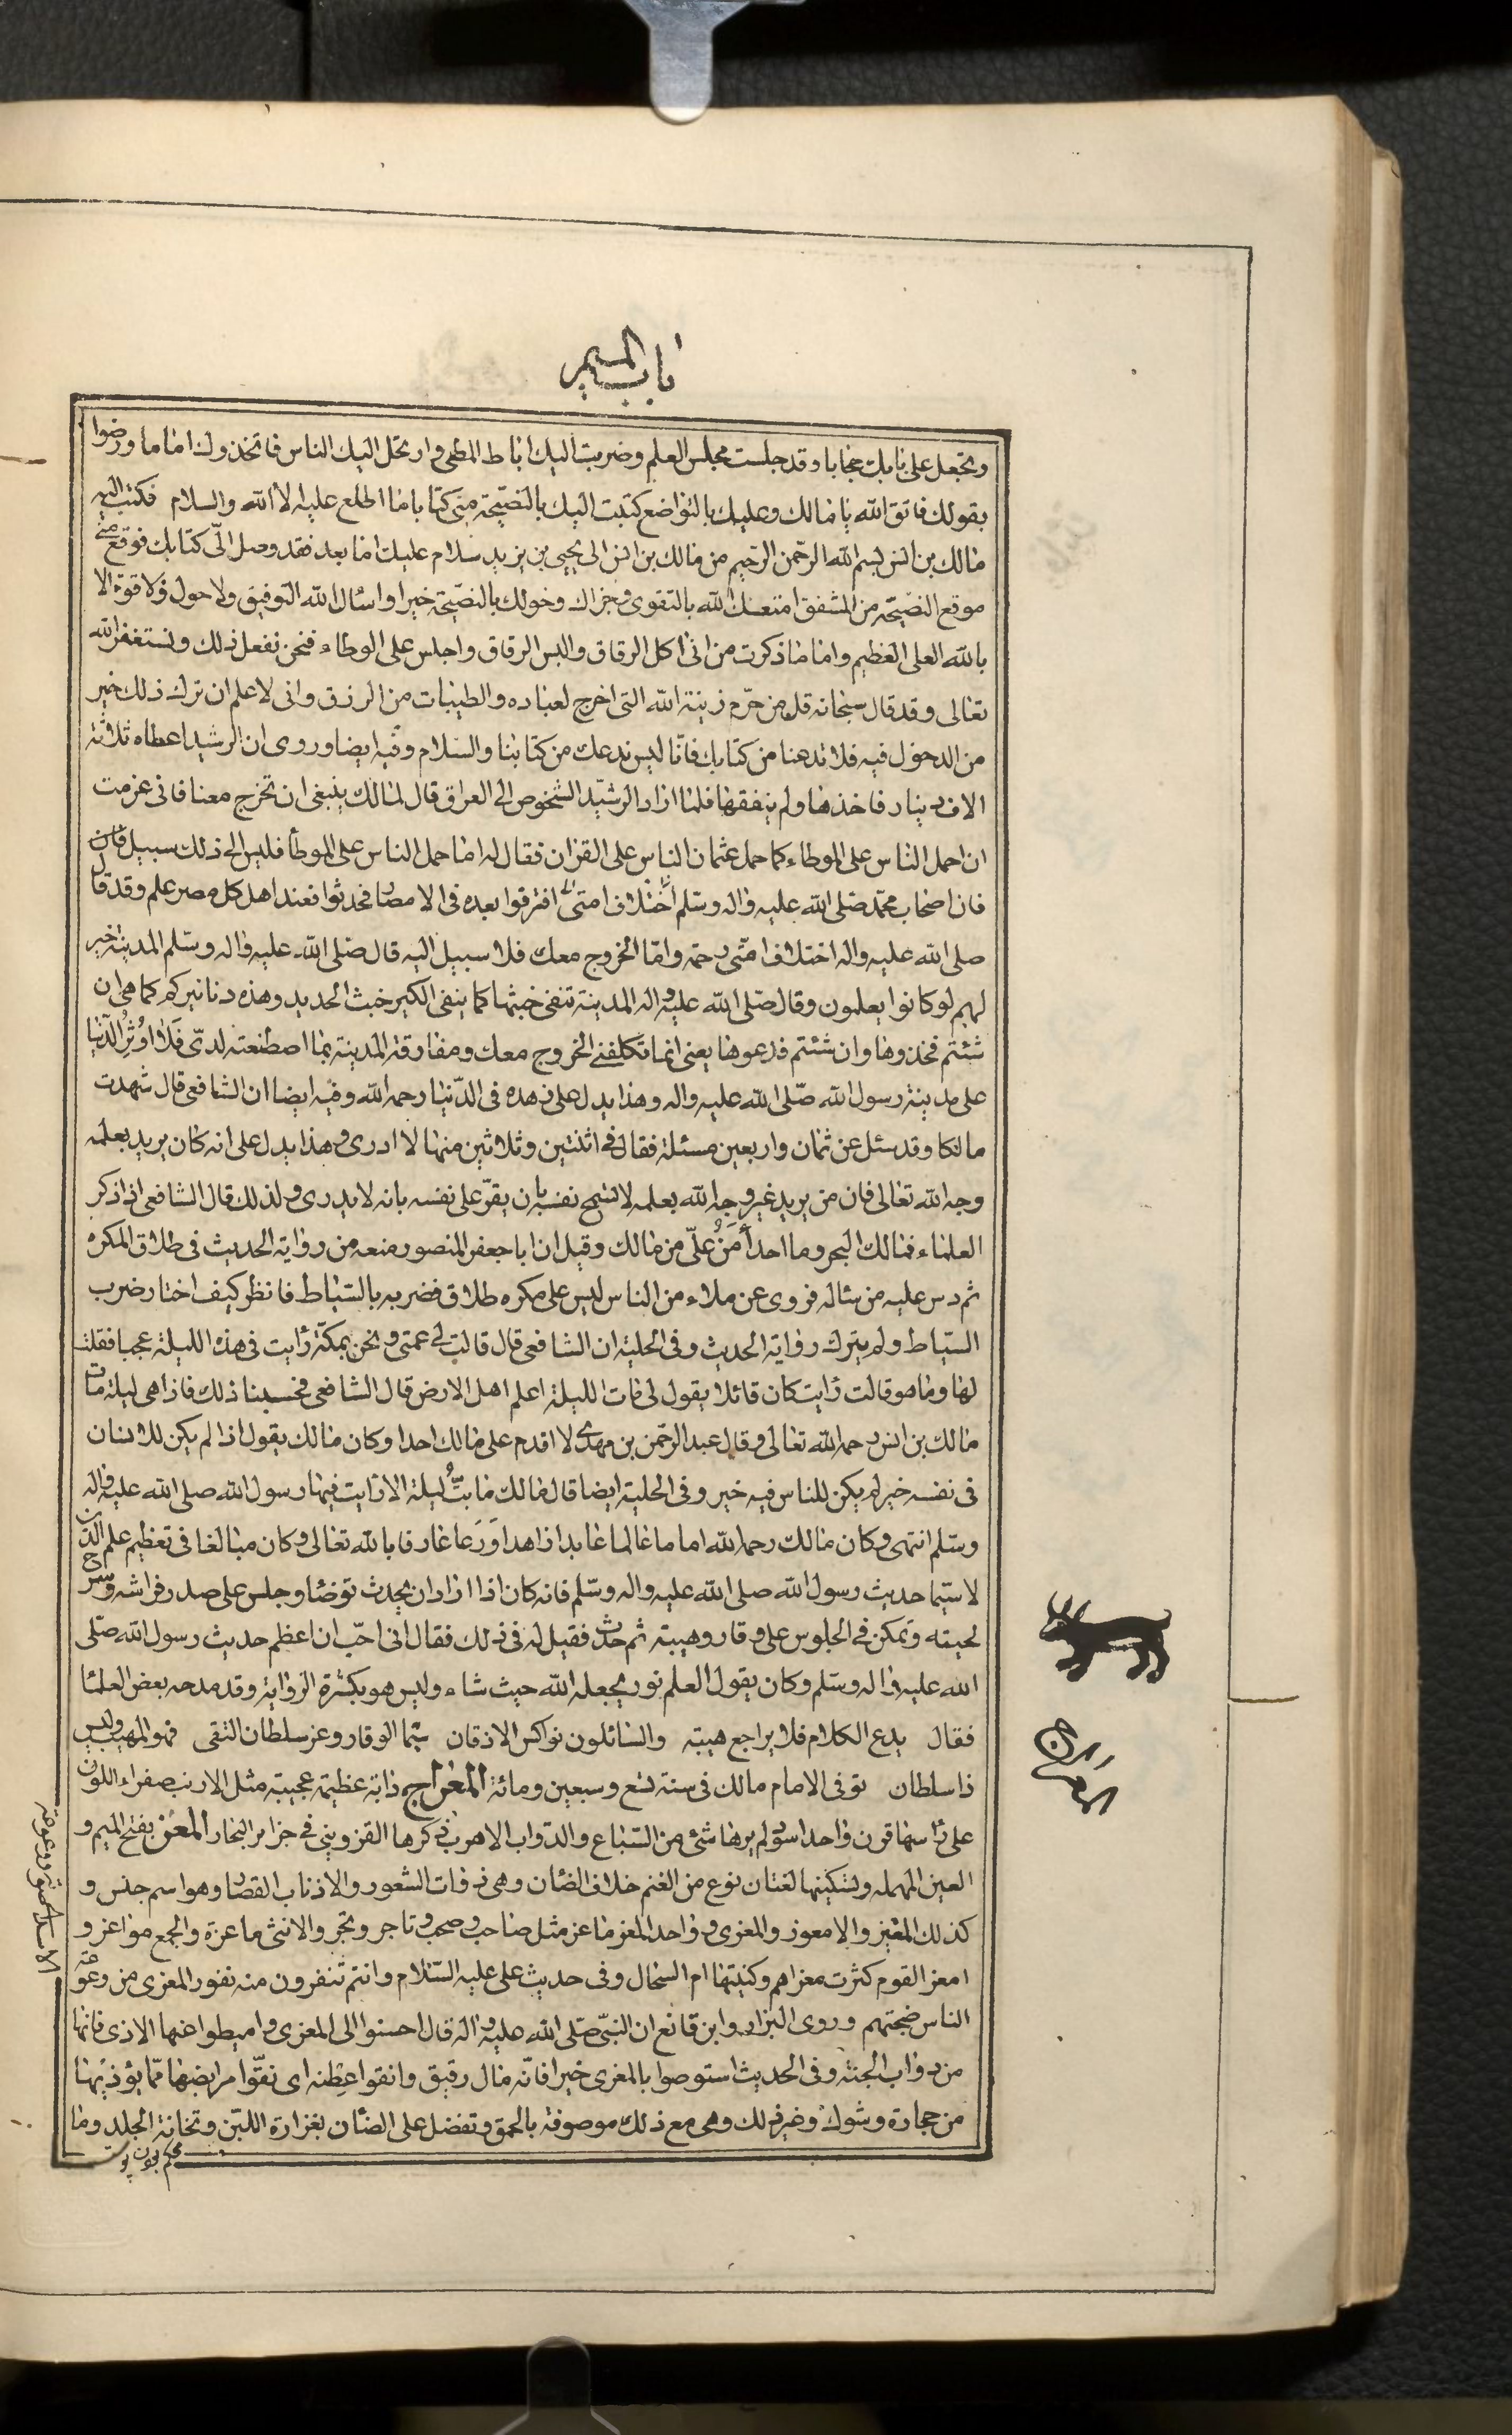 باب الميم
وتجعل على بابك حجابا وقد جلست مجلس العلم وضربت اليك اباط المطى وارتحل اليك الناس فاتخذوك اماما ورضوا
بقولك فاتق الله يا مالك وعليك بالتواضع كتبت اليك بالنصيحة منى كتابا ما اطلع عليه الا الله والسلام فكتب اليه
مالك بن انس بسم الله الرحمن الرحيم من مالك بن انس الى يحيى بن يزيد سلام عليك اما بعد فقد وصل الىّ كتابك فوقع منى
موقع النصيحة من المشفق امتعك الله بالتقوى وجزاك وخولك بالنصيحة خيرا واسئال الله التوفيق ولا حول ولا قوة الا
بالله العلى العظيم واما ما ذكرت من انى اكل الرقاق والبس الرقاق واجلس على الوطاء فنحن نفعل ذلك ونستغفر الله
تعالى وقد قال سبحانه قل من حرّم زينة الله التى اخرج لعباده والطيبات من الرزق وانى لاعلم ان ترك ذلك خير
من الدخول فيه فلا تدعنا من كتابك فانّا ليس ندعك من كتابنا والسلام وفيه ايضا وروى ان الرشيد اعطاه ثلاثة
الاف دينار فاخذها ولم ينفقها فلما اراد الرشيد الشخوص الى العراق قال لمالك ينبغى ان تخرج معنا فانى عزمت
ان احمل الناس على الموطاء كما حمل عثمان الناس على القران فقال له اما حمل الناس على الموطأ فليس الى ذلك سبيل فان
فان اصحاب محمّد صلى الله عليه واله وسلم افترقوا بعده فى الامصار فحدثوا فعند اهل كل مصر علم وقد قال
صلى الله عليه واله اختلاف امتى رحمة وامّا الخروج معك فلا سبيل اليه قال صلى الله عليه واله وسلم المدينة خير
لهم لو كانوا يعلمون وقال صلى الله عليه واله المدينة تنفى خبثها كما ينفى الكير خبث الحديد وهذه دنانيركم كما هى ان
شئتم فخذوها وان شئتم فدعوها يعنى انما تكلفنى الخروج معك ومفارقة المدينة بما اصطنعته لدىّ فلا اوثر الدنيا
على مدينة رسول الله صلى الله عليه واله وهذا يدل على زهده فى الدنيا رحمه الله وفيه ايضا ان الشافعى قال شهدت
مالكا وقد سئل عن ثمان واربعين مسئلة فقال فى اثنتين وثلاثين منها لا ادرى وهذا يدل على انه كان يريد بعلمه
وجه الله تعالى فان من يريد غير وجه الله بعلمه لا تسمح نفسه بان يقرّ على نفسه بانه لا يدرى ولذلك قال الشافعى اذا ذكر
العلماء فمالك البحر وما احد أَمَنُّ علىّ من مالك وقيل ان ابا جعفر المنصور منعه من رواية الحديث فى طلاق المكره
ثم دس عليه من سئاله فروى عن ملاء من الناس ليس على مكره طلاق فضربه بالسياط فانظر كيف اختار ضرب
السياط ولم يترك رواية الحديث وفى الحلية ان الشافعى قال قالت لى عمتى ونحن بمكة رأيت فى هذه الليلة عجبا فقلت
لها وما هو قالت رأيت كان قائلا يقول لى مات الليلة اعلم اهل الارض قال الشافعى فحسبنا ذلك فاذا هى ليلة مات
مالك بن انس رحمه الله تعالى وقال عبد الرحمن بن مهدى لا اقدم على مالك احدا وكان مالك يقول اذا لم يكن للانسان
فى نفسه خير لم يكن للناس فيه خير وفى الحلية ايضا قال مالك ما بتُّ ليلة الا رايت فيها رسول الله صلى الله عليه واله
وسلم انتهى وكان مالك رحمه الله اماما عالما عابدا زاهدا ورعا عارفا بالله تعالى وكان مبالغا فى تعظيم علم الدين
لا سيما حديث رسول الله صلى الله عليه واله وسلم فانه كان اذا اراد ان يحدث توضأ وجلس على صدر فراشه وسرح
لحيته وتمكن فى الجلوس على وقار وهيبة ثم حدث فقيل له فى ذلك فقال انى احبّ ان اعظم حديث رسول الله صلى
الله عليه واله وسلم وكان يقول العلم نور يجعله الله حيث شاء وليس هو بكثرة الرواية وقد مدحه بعض العلماء
فقال يدع الكلام فلا يراجع هيبة والسائلون نواكس الاذقان سيما الوقار وعز سلطان التقى فهو المهيب وليس
ذا سلطان توفى الامام مالك فى سنة تسع وسبعين ومائة المعراج دابة عظيمة عجيبة مثل الارنب صفراء اللون
على رأسها قرن واحد اسود لم يرها شئ من السباع والدواب الا هرب ذكرها القزوينى فى جزاير البحار المعز بفتح الميم و
العين المهملة وتسكينها لغتان نوع من الغنم خلاف الضان وهى ذوات الشعور والاذناب القصار وهو اسم جنس و
كذلك المعيز والامعوز والمعزى وواحد المعز ماعز مثل صاحب وصحب وتاجر وتجر والانثى ماعزة والجمع مواعز و
امعز القوم كثرت معزاهم وكنيتها ام السخال وفى حديث على عليه السلام وانتم تنفرون منه نفور المعزى من وعوعة
الاسد اى صوته ووعوعة
الناس ضجتهم وروى البزار وابن قانع ان النبى صلى الله عليه واله قال احسنوا الى المعزى واميطوا عنها الاذى فانها
من دواب الجنة وفى الحديث استوصوا بالمعزى خيرا فانّه مال رقيق وانقوا عطنه اى نقّوا مرابضها ممّا يؤذيها
من حجارة وشوك وغير ذلك وهى مع ذلك موصوفة بالحمق وتفضل على الضأن بغزارة اللبن وثخانة الجلد وما
المعراج